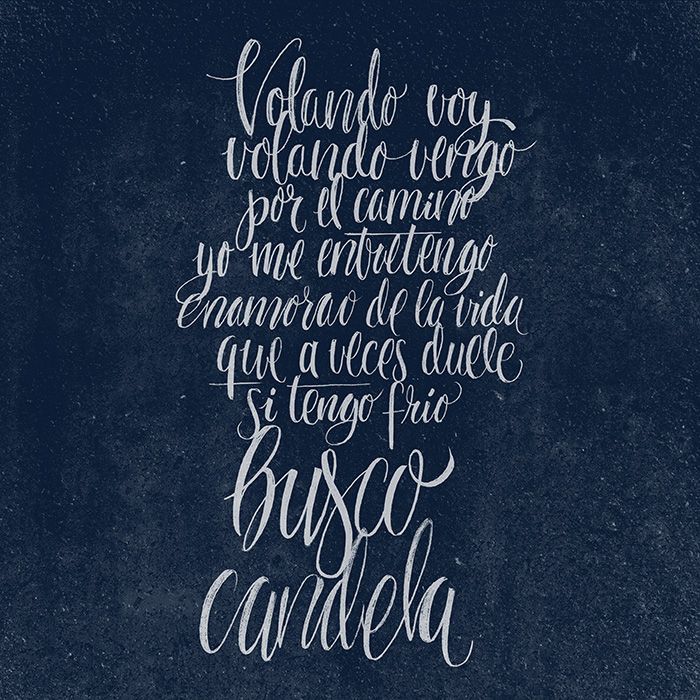 Volando voy
volando vengo
por el camino
yo me entretengo
enamorao de la vida
que a veces duele
si tengo frio
busco
candela